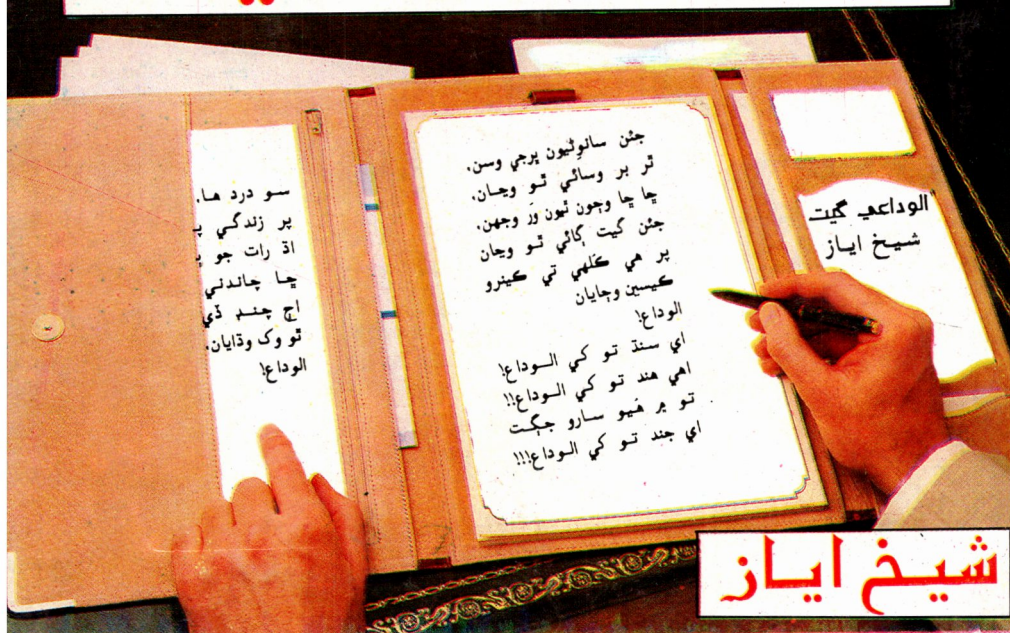 جئن سانوڻيون پرجي وسن.
ٿر بر وسائي ٿو وڃان.
ڇا ڇا وڄون ٿيون وَر وڄهن.
جئن گيت ڳائي ٿو وڃان
پر هي ڪلهي تي ڪينرو
ڪيسين وڄايان
الوداع!
اي سنڌ تو کي الوداع!
اهي هند تو کي الوداع!!
تو ۾ هُيو سارو جڳت
اي جند تو کي الوداع!!!
سو درد ها.
پر زندگي
اڌ رات جو
ڇا چاندني
اڄ چنڊ ڏي
ٿو وک وڌايان.
الوداع!
الوداعي گيت
شيخ اياز
شيخ اياز